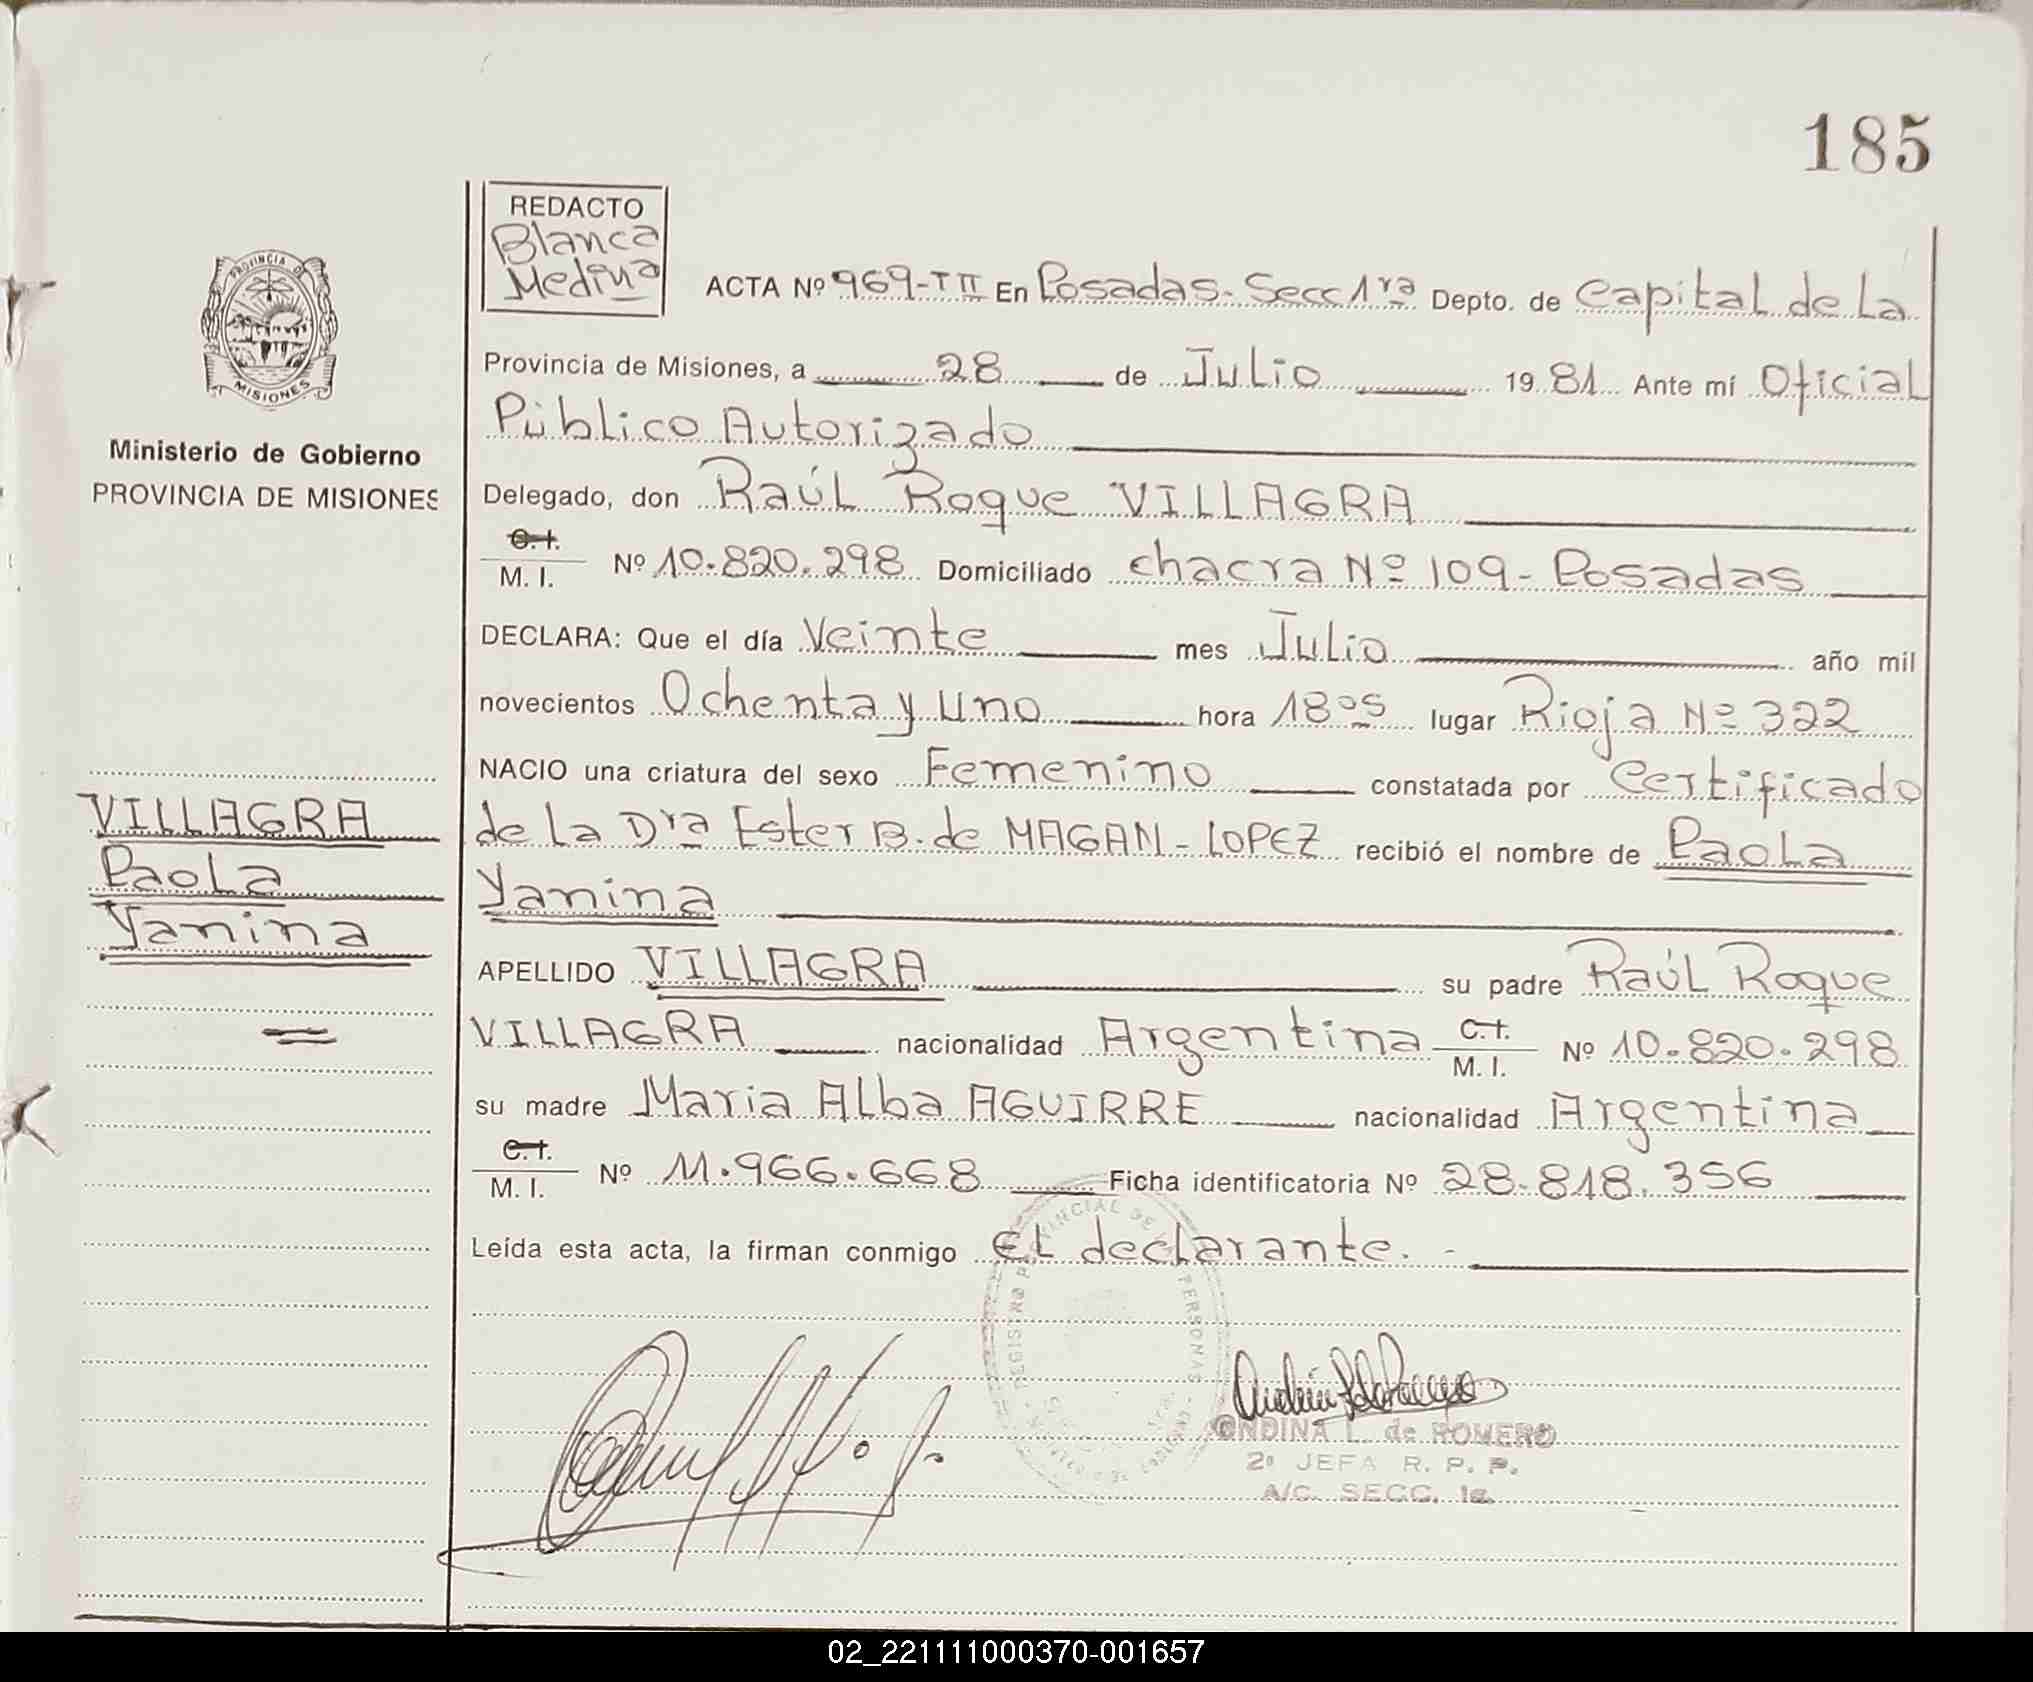 185
REDACTO
Blanca
Medina
ACTA Nº 969-TII En Posadas-Secc 1ra Depto. de Capital de La
Provincia de Misiones, a 28 de Julio 19 81 Ante mí Oficial
Público Autorizado
Delegado, don Raúl Roque VILLAGRA
C.I.
M. I. Nº 10.820.298 Domiciliado chacra Nº 109- Posadas
DECLARA: Que el día Veinte mes Julio año mil
novecientos Ochenta y Uno hora 18 05 lugar Rioja Nº 322
NACIO una criatura del sexo Femenino constatada por Certificado
de La Dra Ester B. de MAGAN-LOPEZ recibió el nombre de Paola
Yanina
APELLIDO VILLAGRA su padre Raúl Roque
VILLAGRA nacionalidad Argentina C.I. M. I. Nº 10.820.298
su madre Maria Alba AGUIRRE nacionalidad Argentina
C.I.
M. I. Nº 11.966.668 Ficha identificatoria Nº 28.818.356
Leída esta acta, la firman conmigo El declarante.-
PROVINCIA DE
MISIONES
Ministerio de Gobierno
PROVINCIA DE MISIONES
VILLAGRA
Paola
Yanina
REGISTRO PROVINCIAL DE PERSONAS
ONDINA L. de ROMERO
2º JEFA R. P. P.
A/C. SECC. 1a.
02_221111000370-001657